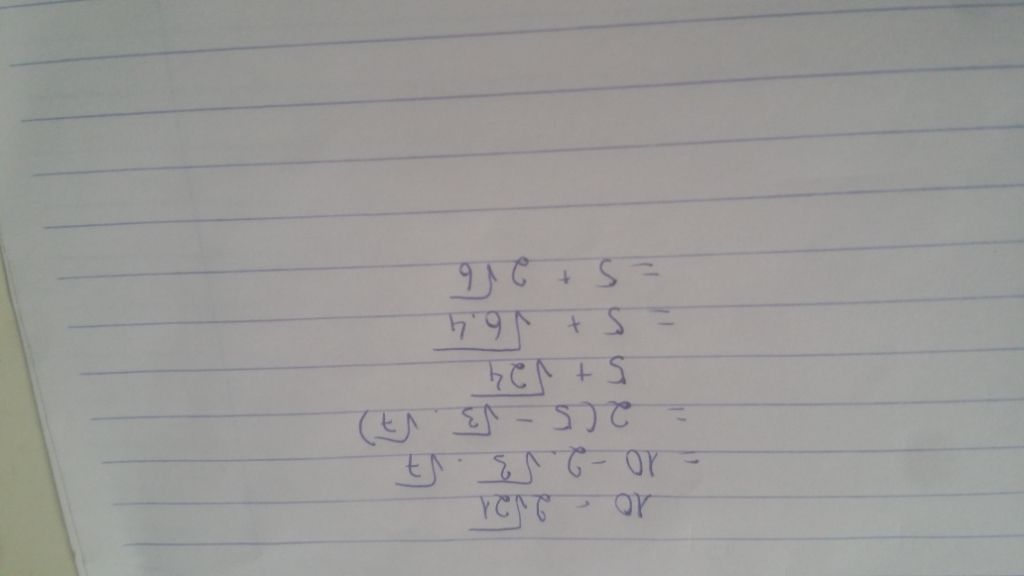 10 - 2√21
= 10 - 2.√3.√7
= 2(5 - √3.√7)
5 + √24
= 5 + √6.4
= 5 + 2√6